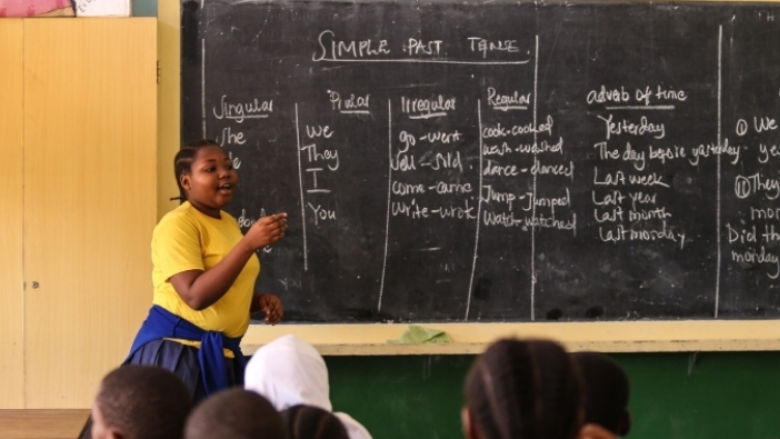 SIMPLE PAST TENSE
Singular
She
Plular
We
They
I
You
Irregular
go - went
sell - sold
come - came
write - wrote
Regular
cook - cooked
wash - washed
dance - danced
Jump - Jumped
Watch - watched
adverb of time
Yesterday
The day before yesterday
Last week
Last year
last month
last monday
① We
② They
Did th
monday